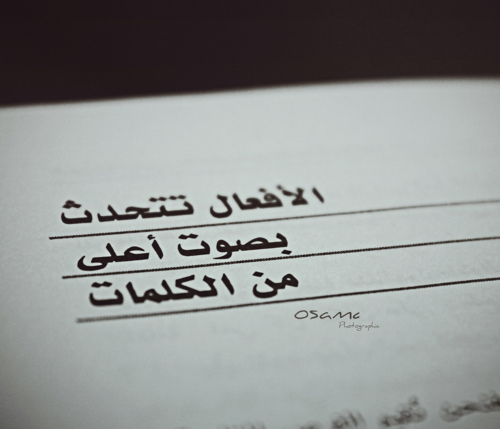 الأفعال تتحدث
بصوت أعلى
من الكلمات
OSaMa
Photographia